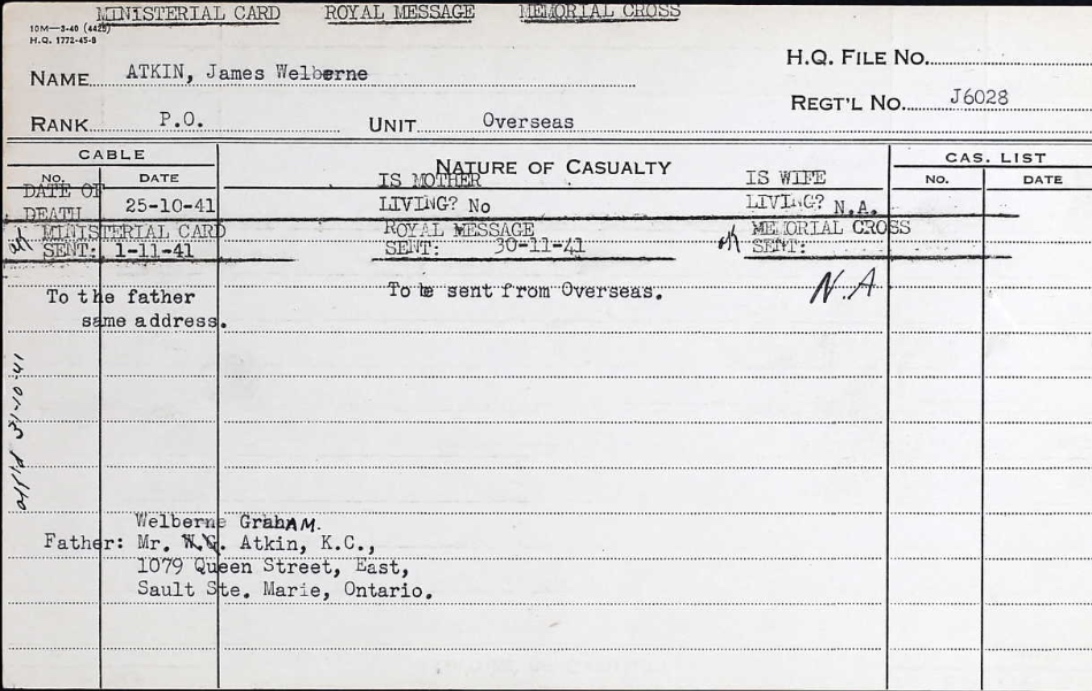 MINISTERIAL CARD ROYAL MESSAGE MEMORIAL CROSS
10M—3-40 (4425)
H.Q. 1772-45-8
H.Q. FILE NO.
NAME ATKIN, James Welberne
REGT'L NO. J6028
RANK P.O. UNIT Overseas
CABLE NATURE OF CASUALTY CAS. LIST
NO. DATE IS MOTHER IS WIFE NO. DATE
DATE OF DEATH 25-10-41 LIVING? No LIVING? N.A.
MINISTERIAL CARD ROYAL MESSAGE MEMORIAL CROSS
SENT: 1-11-41 SENT: 30-11-41 SENT:
To the father To be sent from Overseas. N.A
same address.
31-10-41
Welberne GrahAM.
Father: Mr. W.G. Atkin, K.C.,
1079 Queen Street, East,
Sault Ste. Marie, Ontario.